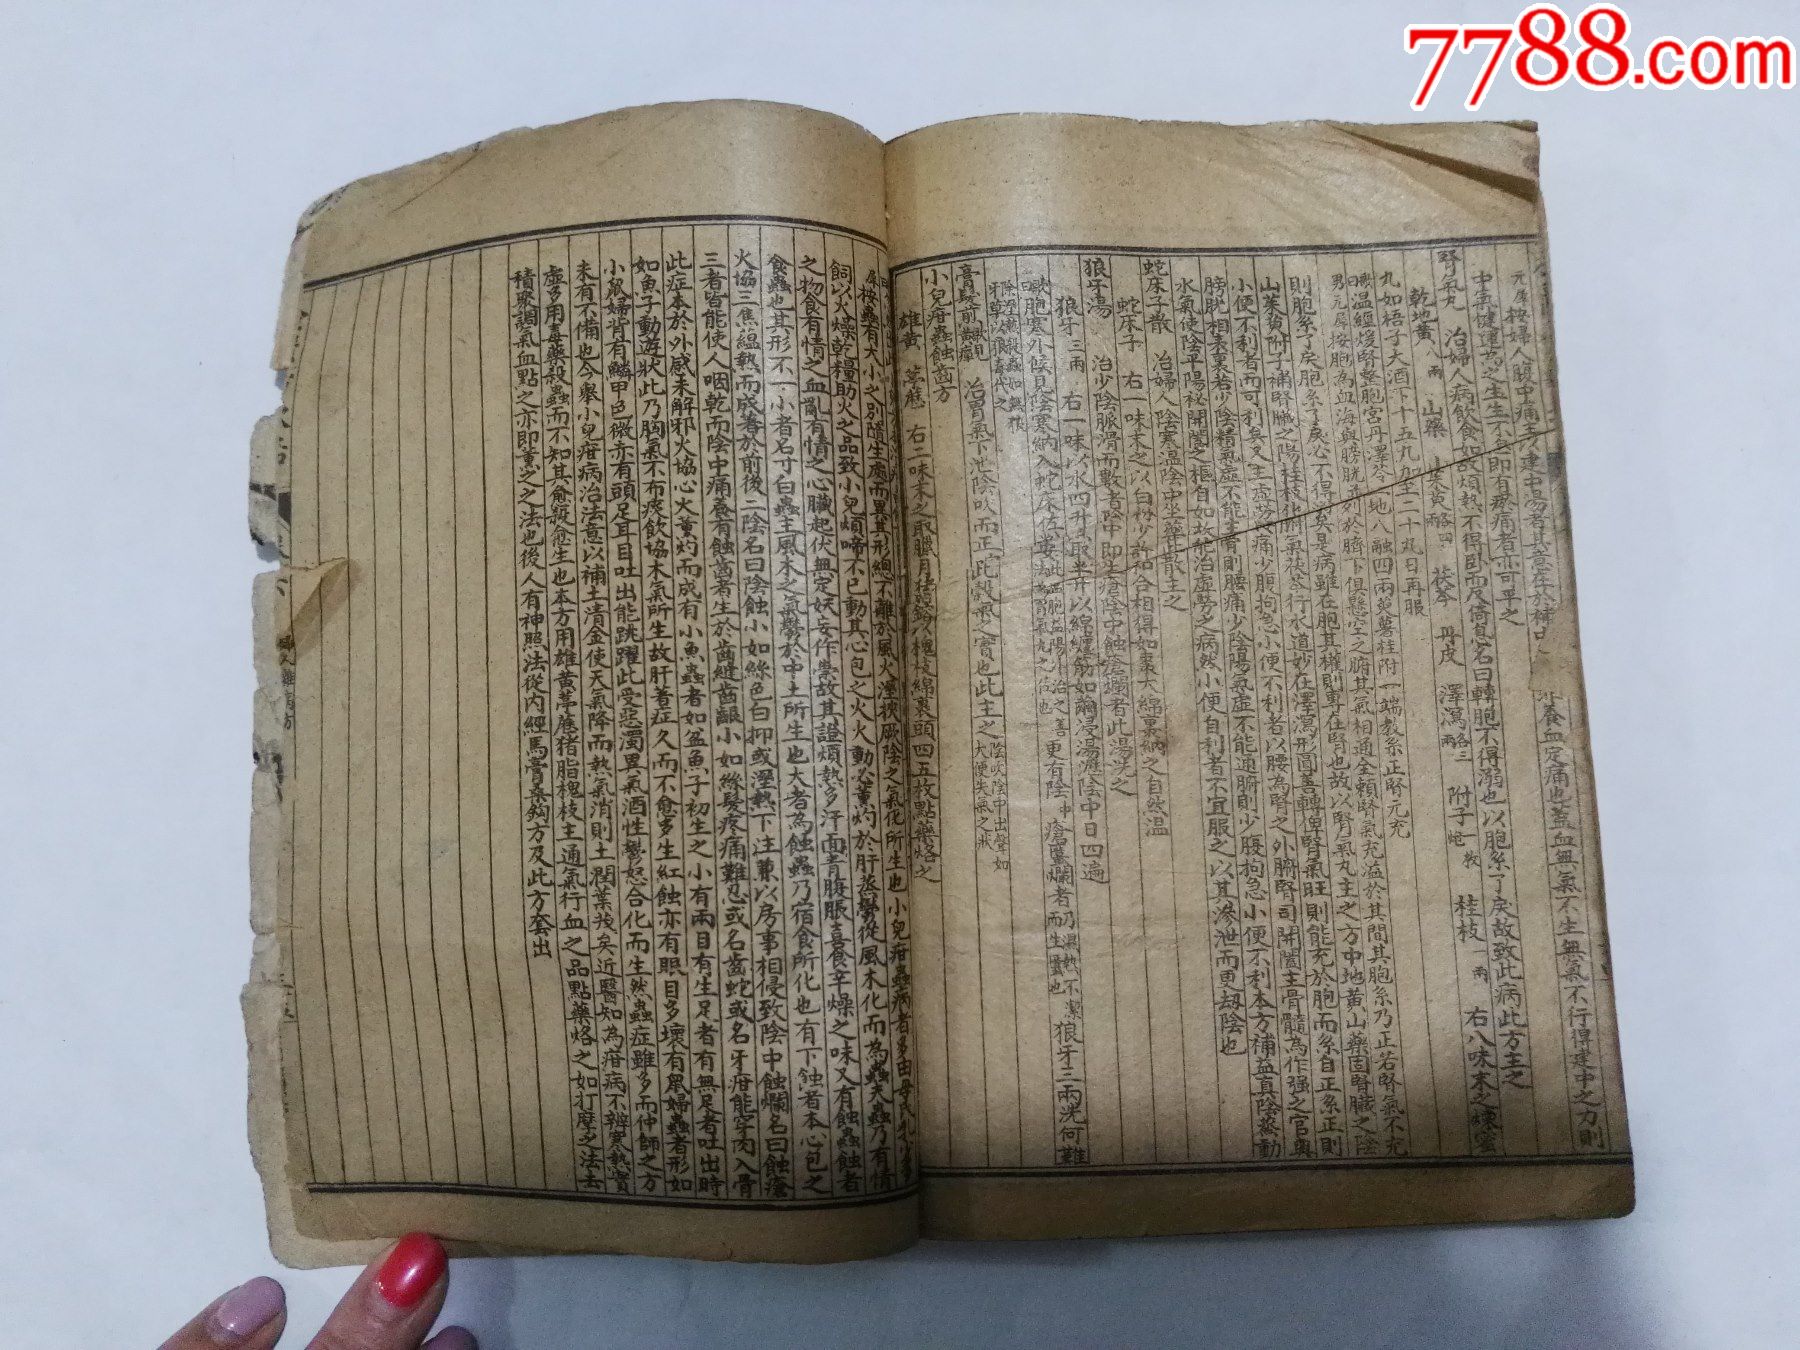 7788.com
元犀按婦人腹中痛主小建中湯者其意在於補
養血定痛也蓋血無氣不生無氣不行得建中之力則
中氣健運為之生生不息即有疼痛者亦可平之
腎氣丸 治婦人病飲食如故煩熱不得臥而反倚息名曰轉胞不得溺也以胞系了戾故致此病此方主之
乾地黃八兩 山藥 茯苓 丹皮 澤瀉 附子一枚 桂枝一兩 右八味末之煉蜜
丸如梧子大酒下十五丸加至二十丸日再服
溫經煖腎整胞宮丹澤苓 地八融四兩萸薯桂附一端教系正腎元充
男元犀按胞為血海與膀胱並列於臍下俱懸空之腑其氣相通全賴腎氣充溢於其間其胞系乃正若腎氣不充
則胞系了戾胞系了戾必不得矣是病雖在胞其權則專在腎也故以腎氣丸主之方中地黃山藥固腎臟之陰
山萊萸附子補腎臟之陽桂枝化氣茯苓行水道妙在澤瀉形圓善轉俾腎氣旺則能充於胞而系自正系正則
小便不利者而可利矣又主虛勞腰痛少腹拘急小便不利者以腰為腎之外腑腎司開闔主骨髓為作强之官與
膀胱相表裏若少陰精氣虛不能主骨則腰痛少陰陽氣虛不能通腑則少腹拘急小便不利本方補益真陰蒸動
水氣使陰平陽秘開闔之樞自如故能治虛勞之病然小便自利者不宜服之以其滲泄而更劫陰也
蛇床子散 治婦人陰寒溫陰中坐藥散主之
蛇床子 右一味末之以白粉少許和合相得如棗大綿裹納之自然溫
狼牙湯 治少陰脈滑而數者陰中即生瘡陰中蝕瘡爛者此湯洗之
狼牙三兩 右一味以水四升煮取半升以綿纏筋如繭浸湯瀝陰中日四遍
胞寒外候見陰寒納入蛇床佐 更有陰中瘡䘌爛者 狼牙三兩洗何難
膏髮煎 治胃氣下泄陰吹而正 此穀氣之實也此主之
小兒疳蟲蝕齒方
雄黃 葶藶 右二味末之取臘月猪脂鎔以槐枝綿裹頭四五枚點藥烙之
犀按蟲有大小之別隨生處而異其形總不離於風火溼被厥陰之氣化所生也小兒疳蟲病者多由母氏
飼以火燥乾糧助火之品致小兒煩啼不已動其心包之火火動必薰灼於肝蒸鬱從風木化而為蟲夫蟲乃有情
之物食有情之血亂有情之心臟起伏無定妖妄作祟故其證煩熱多汗面青腹脹喜食辛燥之味又有蝕蟲蝕者
食蟲也其形不一小者名寸白蟲主風木之氣鬱於中土所生也大者為蝕蟲乃宿食所化也有下蝕者本心包之
火協三焦蘊熱而成著於前後二陰名曰陰蝕小如絲色白抑或溼熱下注兼以房事相侵致陰中蝕爛名曰蝕瘡
三者皆能使人咽乾而陰中痛癢有蝕齒者生於齒縫齒齦小如絲髮疼痛難忍或名齒蛇或名牙疳能穿肉入骨
此症本於外感未解邪火協心火薰灼而成有小魚蟲者如盆魚子初生之小有兩目有生足者有無足者吐出時
如魚子動遊狀此乃胸氣不布痰飲協木氣所生故肝着症久而不愈多生紅蝕亦有眼目多壞有鼠婦蟲者形如
小鼠婦背有鱗甲色微赤有頭足耳目吐出能跳躍此受惡濁異氣酒性鬱怒合化而生然蟲症雖多而仲師之方
未有不備也今舉小兒疳病治法意以補土清金使天氣降而熱氣消則土潤葉茂矣近醫知為疳病不辨寒熱實
虛多用毒藥殺蟲而不知其愈殺愈生也本方用雄黃葶藶猪脂槐枝主通氣行血之品點藥烙之如打摩之法去
積聚調氣血點之亦即薰之之法也後人有神照法從內經馬膏桑鈎方及此方套出